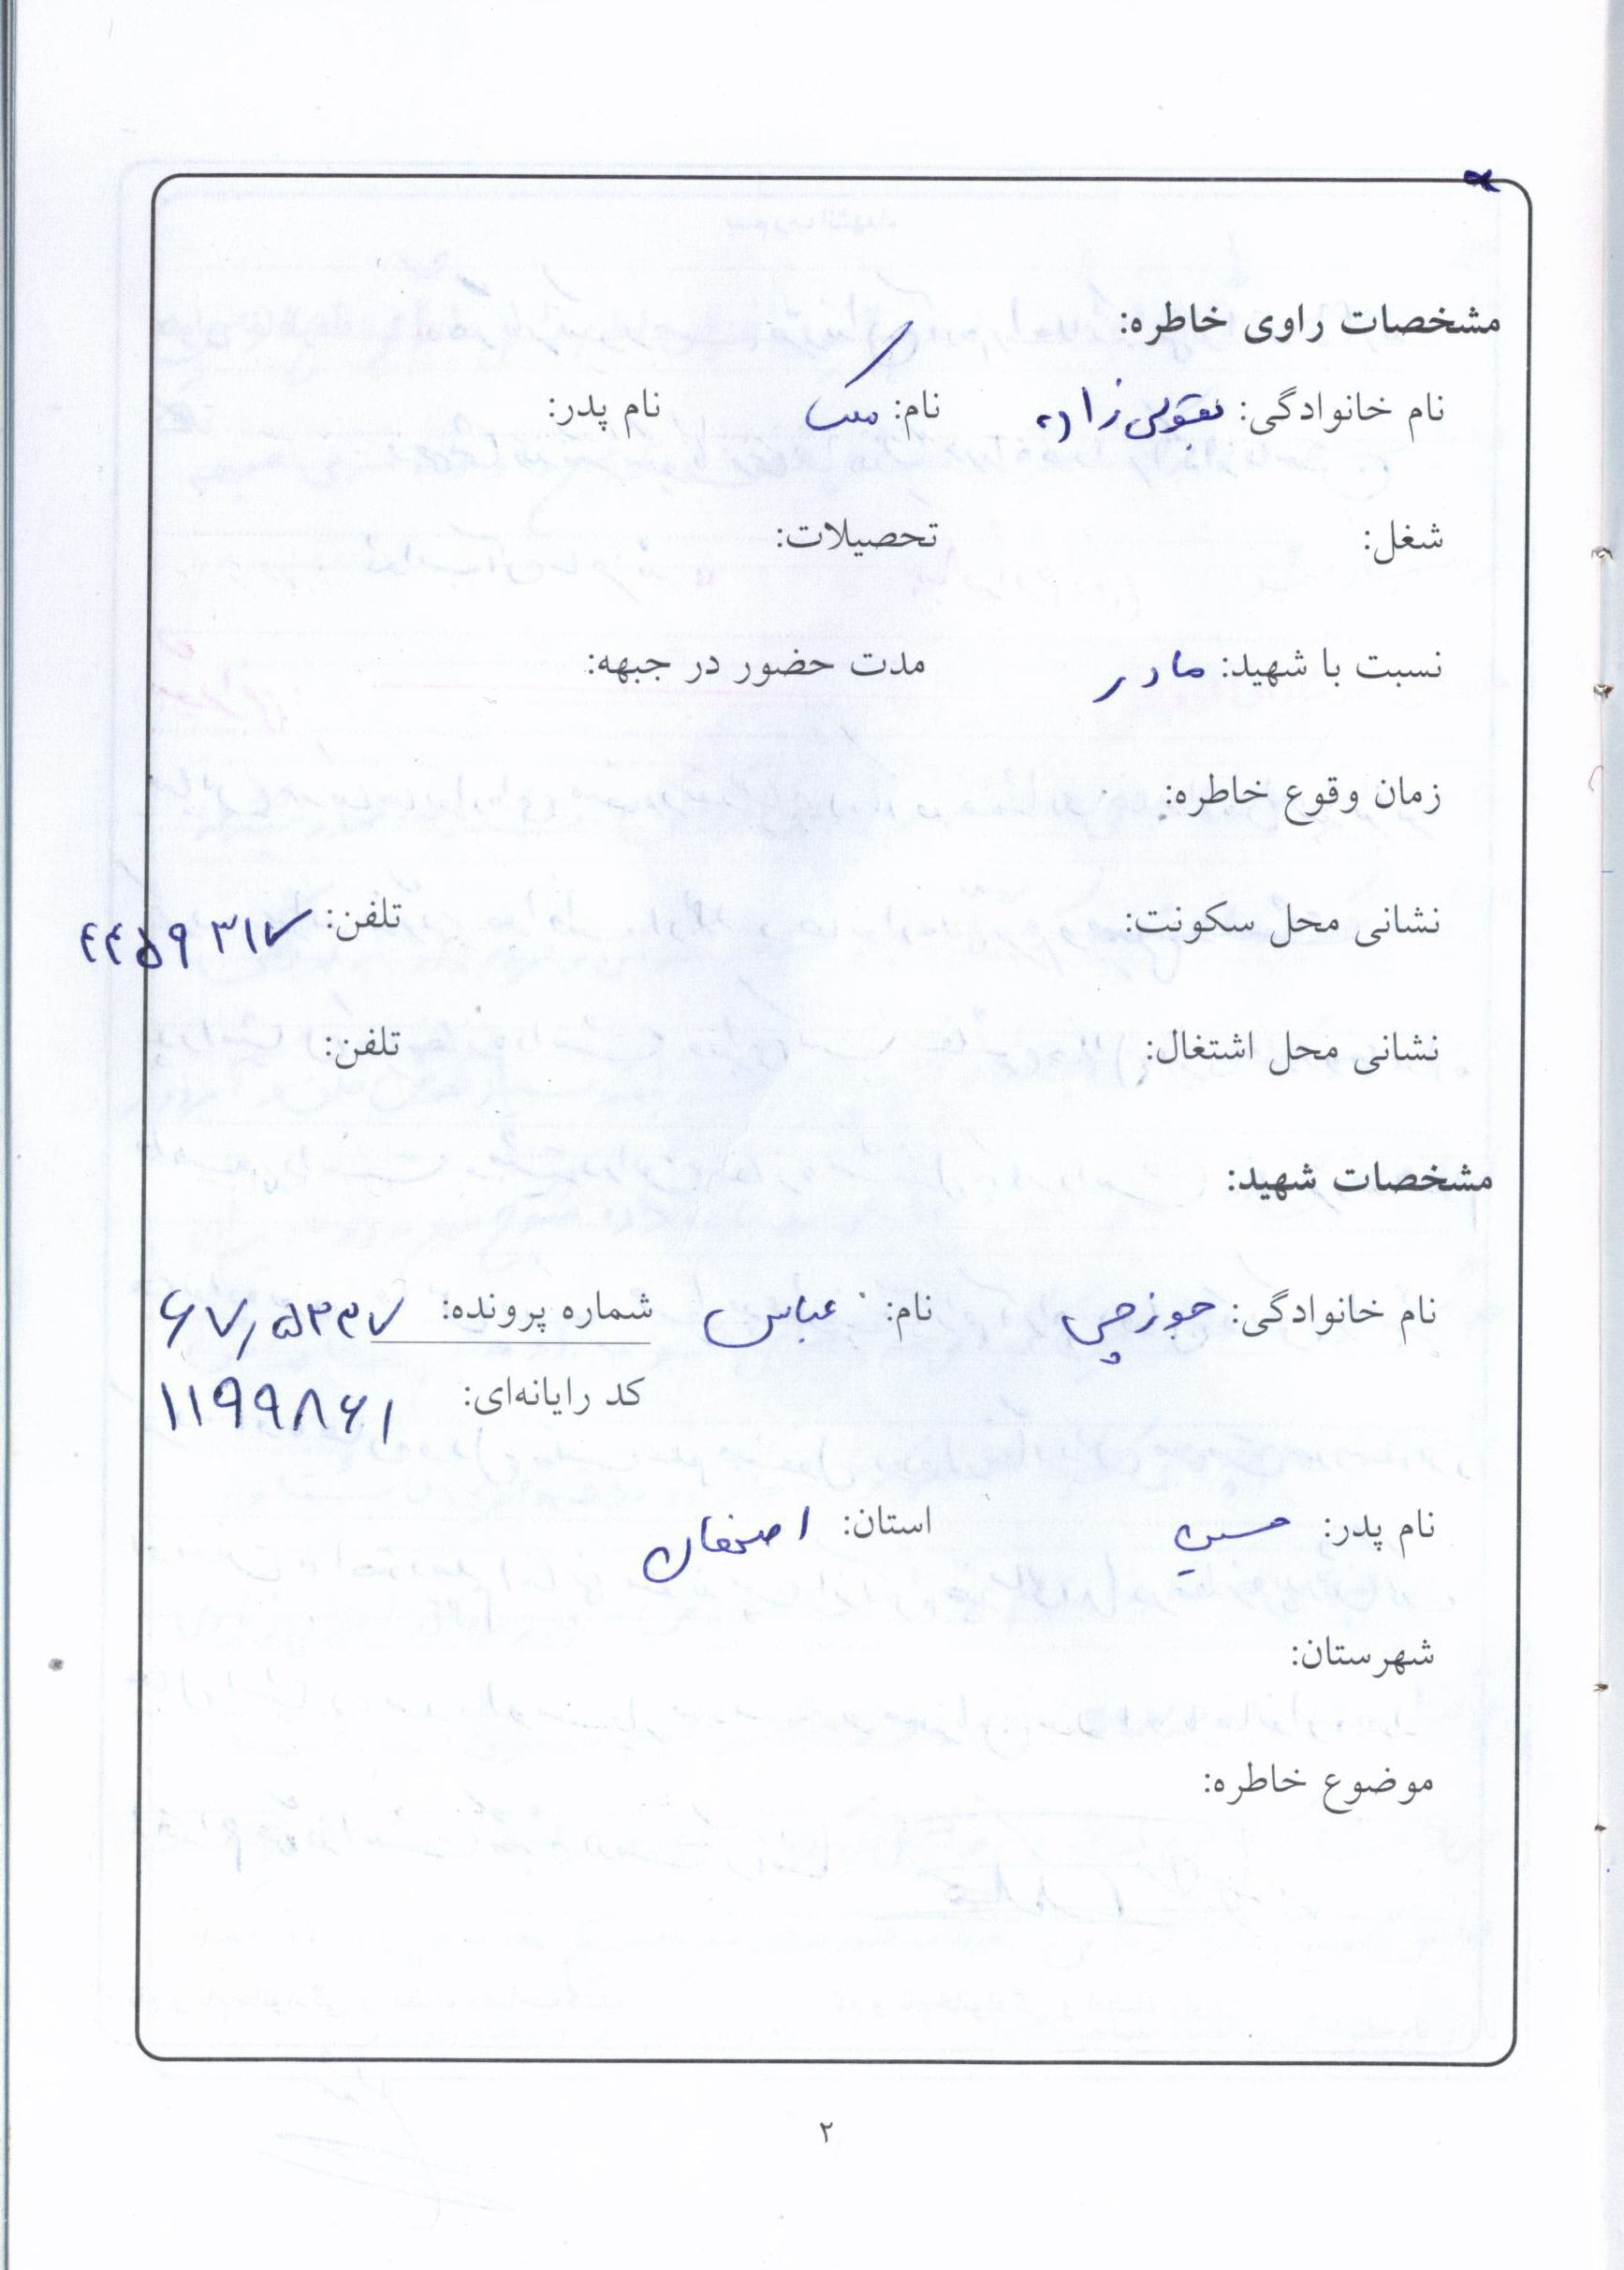 مشخصات راوی خاطره:
نام خانوادگی: یعقوبی زاده نام: ملک نام پدر:
شغل: تحصیلات:
نسبت با شهید: مادر مدت حضور در جبهه:
زمان وقوع خاطره:
نشانی محل سکونت: تلفن: ۴۴۵۹۳۱۷
نشانی محل اشتغال: تلفن:
مشخصات شهید:
نام خانوادگی: جوزچی نام: عباس شماره پرونده: ۶۷٫۵۳۳۷
کد رایانه‌ای: ۱۱۹۹۸۶۱
نام پدر: حسین استان: اصفهان
شهرستان:
موضوع خاطره:
۲